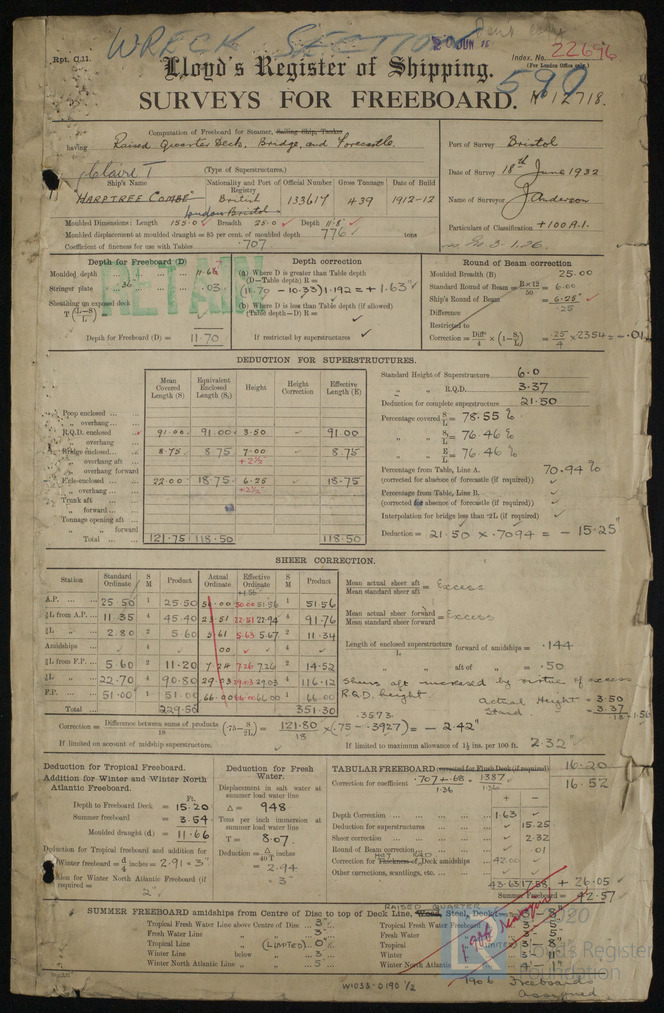 WRECK SECTION
20 JUN
Rpt. C.11.
Index. No. 22696
(For London Office only.)
Lloyd's Register of Shipping.
590
SURVEYS FOR FREEBOARD. No 12718.
Computation of Freeboard for Steamer, Sailing Ship, Tanker
having Raised Quarter Deck, Bridge, and Forecastle.
(Type of Superstructures.)
Port of Survey Bristol
Date of Survey 18th June 1932
Name of Surveyor J Anderson
Particulars of Classification +100 A.1.
Claire T
Ship's Name
Nationality and Port of Registry
Official Number
Gross Tonnage
Date of Build
"HARPTREE COMBE"
British
London Bristol
133617
439
1912-12
Moulded Dimensions: Length 155.0 Breadth 25.0 Depth 11.8
Moulded displacement at moulded draught = 85 per cent. of moulded depth 776 tons
Coefficient of fineness for use with Tables .707
RETAIN
Depth for Freeboard (D)
Moulded depth
Stringer plate .36 .03
Sheathing on exposed deck
T (L-S/L) =
Depth for Freeboard (D) = 11.70
Depth correction
(a) Where D is greater than Table depth
(D-Table depth) R =
(11.70 - 10.33) 1.192 = + 1.63"
(b) Where D is less than Table depth (if allowed)
(Table depth-D) R =
If restricted by superstructures
Round of Beam correction
Moulded Breadth (B) 25.00
Standard Round of Beam = B×12/50 = 6.00
Ship's Round of Beam = 6.25"
Difference .25
Restricted to
Correction = Diff/4 × (1-S/L) = .25/4 × .2354 = -.01
DEDUCTION FOR SUPERSTRUCTURES.
Mean Covered Length (S)
Equivalent Enclosed Length (S₁)
Height
Height Correction
Effective Length (E)
Poop enclosed
" overhang
R.Q.D. enclosed 91.00 91.00 3.50 91.00
" overhang
Bridge enclosed 8.75 8.75 7.00 8.75
" overhang aft +2½"
" overhang forward
F'cle enclosed 22.00 18.75 6.25 18.75
" overhang +2½"
Trunk aft
" forward
Tonnage opening aft
" forward
Total 121.75 118.50 118.50
Standard Height of Superstructure 6.0
" " R.Q.D. 3.37
Deduction for complete superstructure 21.50
Percentage covered S/L = 78.55 %
" " S₁/L = 76.46 %
" " E/L = 76.46 %
Percentage from Table, Line A. 70.94 %
(corrected for absence of forecastle (if required))
Percentage from Table, Line B.
(corrected for absence of forecastle (if required))
Interpolation for bridge less than .2L (if required)
Deduction = 21.50 × .7094 = - 15.25"
SHEER CORRECTION.
Station
Standard Ordinate
S M
Product
Actual Ordinate
Effective Ordinate
S M
Product
+1.56
A.P. 25.50 1 25.50 50.00 50.00 51.56 1 51.56
⅙L from A.P. 11.35 4 45.40 22.51 22.94 4 91.76
⅓L " 2.80 2 5.60 5.61 5.63 5.67 2 11.34
Amidships 4 .00 4
⅓L from F.P. 5.60 2 11.20 7.24 7.26 7.26 2 14.52
⅙L " 22.70 4 90.80 29.03 29.03 29.03 4 116.12
F.P. 51.00 1 51.00 66.00 66.00 66.00 1 66.00
Total 229.50 351.30
Mean actual sheer aft / Mean standard sheer aft = Excess
Mean actual sheer forward / Mean standard sheer forward = Excess
Length of enclosed superstructure / L forward of amidships = .144
" " aft of " = .50
Sheers aft increased by virtue of excess
R.Q.D. height.
Actual Height = 3.50
Stand. " = 3.37
.13 = 1.56
Correction = Difference between sums of products / 18 (.75 - S/2L) = 121.80/18 × (.75 - .3927) = - 2.42"
.3573
If limited on account of midship superstructure.
If limited to maximum allowance of 1½ ins. per 100 ft. 2.32"
Deduction for Tropical Freeboard.
Addition for Winter and Winter North Atlantic Freeboard.
Ft.
Depth to Freeboard Deck = 15.20
Summer freeboard = 3.54
Moulded draught (d) = 11.66
Deduction for Tropical freeboard and addition for
Winter freeboard = d/4 inches = 2.91 = 3"
Addition for Winter North Atlantic Freeboard (if required) = 2"
Deduction for Fresh Water.
Displacement in salt water at summer load water line
Δ = 948
Tons per inch immersion at summer load water line
T = 8.07
Deduction = Δ/40T inches
= 2.94
= 3"
TABULAR FREEBOARD corrected for Flush Deck (if required) 16.20
Correction for coefficient .707+.68/1.36 = 1.387/1.36 16.52
+ -
Depth Correction 1.63
Deduction for superstructures 15.25
Sheer correction 2.32
Round of Beam correction .01
Correction for Thickness of Deck amidships 42.00
Other corrections, scantlings, etc.
43.63 17.58 + 26.05
Summer Freeboard = 42.57
RAISED QUARTER
SUMMER FREEBOARD amidships from Centre of Disc to top of Deck Line, Wood, Steel, Deck
Tropical Fresh Water Line above Centre of Disc 3"
Fresh Water Line " " 3"
Tropical Line (LIMITED) " 0"
Winter Line below " 3
Winter North Atlantic Line " " 5
Tropical Fresh Water Freeboard
Fresh Water "
Tropical " LIMITED 3'-8"
Winter " 3'-11"
Winter North Atlantic " 4'-1"
1906 Freeboards
assigned
2020
Lloyd's Register
Foundation
W1038-0190 1/2